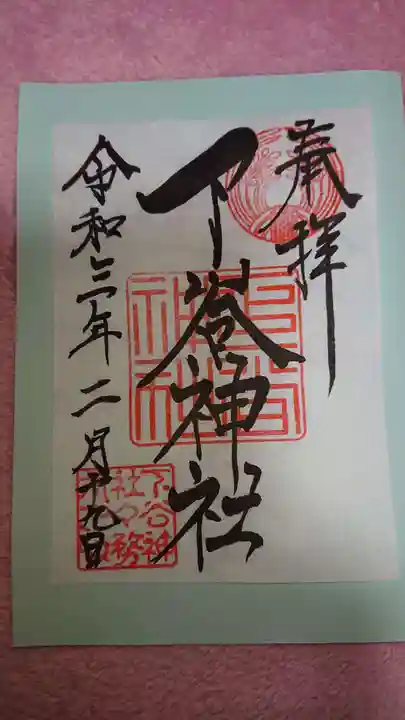 奉拝
下谷神社
令和三年二月十九日
下谷神
社